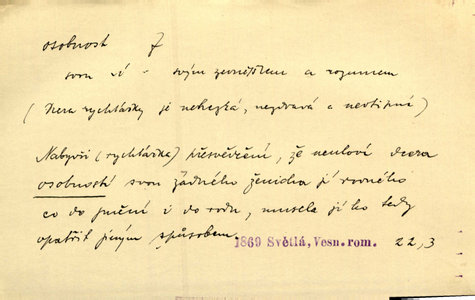 osobnost f
svou ví - svým zevnějškem a rozumem
(Dcera rychtářky je nehezká, nezdravá a nevtipná)
Nabyvši (rychtářka) přesvědčení, že neuloví dcera
osobností svou žádného ženicha jí rovného
co do jmění i do rodu, musela jí ho tedy
opatřit jiným způsobem.
1869 Světlá, Vesn. rom. 22,3